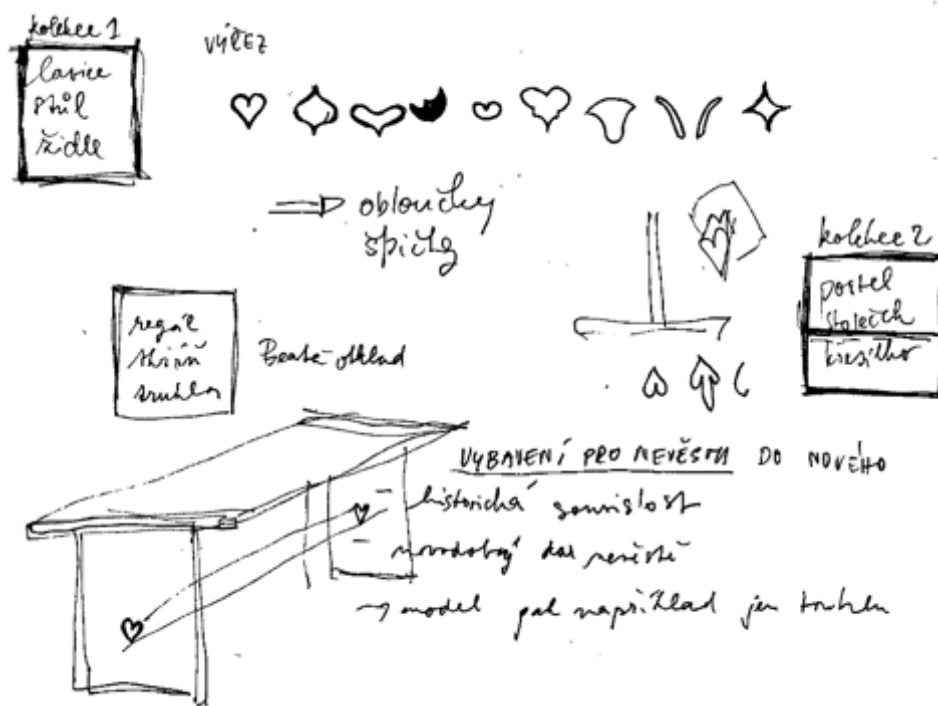 kolekce 1
lavice
stůl
židle
VÝŘEZ
obloučky
špičky
kolekce 2
postel
stoleček
křesílko
regál
skříň
truhla
odklad
VYBAVENÍ PRO NEVĚSTU DO NOVÉHO
- historická souvislost
- novodobý dar nevěstě
→ model pak například jen truhlu